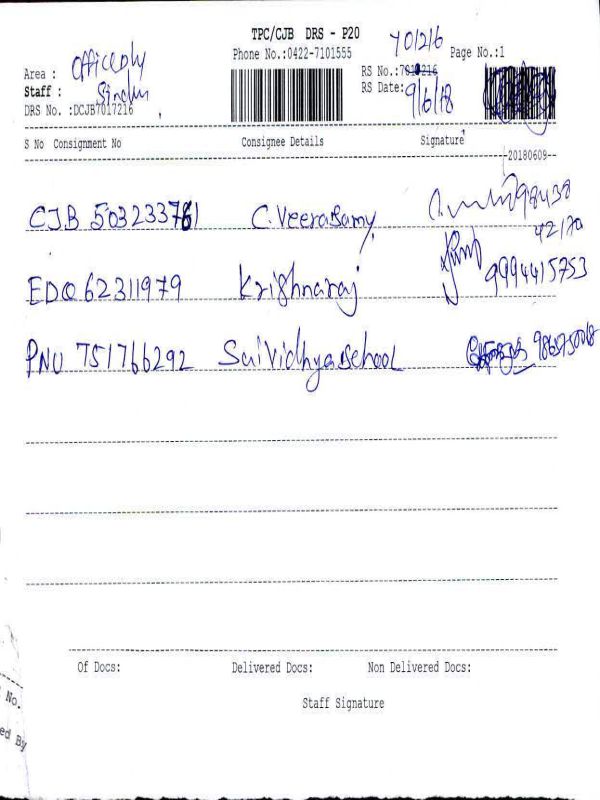 TPC/CJB DRS - P20
Phone No.:0422-7101555
701216
Page No.:1
Area : Officedly
RS No.:
Staff : Sindhu
RS Date: 9/6/18
DRS No. :DCJB7017216
S No Consignment No Consignee Details Signature
20180609--
CJB 503233761 C. Veerasamy 98438
42170
EDQ 62311979 Krishnaraj 9994415753
PNU 751766292 Sai Vidhya School
Of Docs: Delivered Docs: Non Delivered Docs:
Staff Signature
No.
ed By